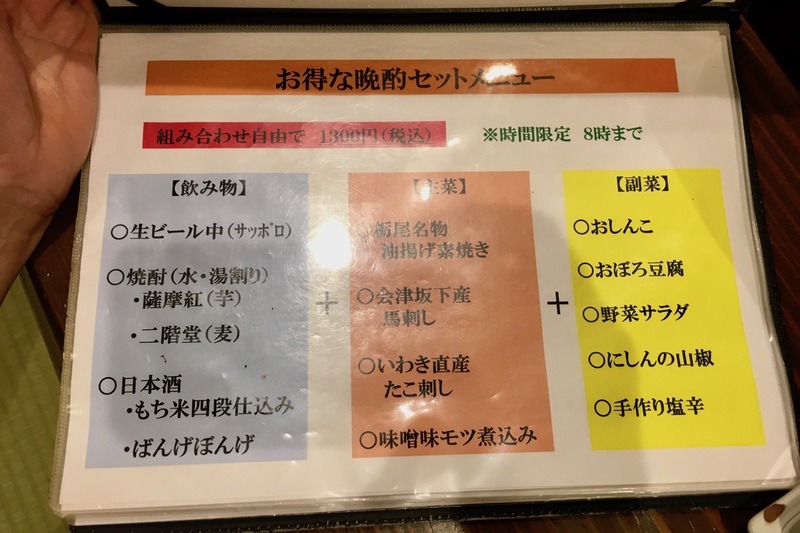 お得な晩酌セットメニュー
組み合わせ自由で 1300円(税込)
※時間限定 8時まで
【飲み物】
○生ビール中(サッポロ)
○焼酎(水・湯割り)
・薩摩紅(芋)
・二階堂(麦)
○日本酒
・もち米四段仕込み
・ばんげぼんげ
+
【主菜】
○栃尾名物
油揚げ素焼き
○会津坂下産
馬刺し
○いわき直産
たこ刺し
○味噌味モツ煮込み
+
【副菜】
○おしんこ
○おぼろ豆腐
○野菜サラダ
○にしんの山椒
○手作り塩辛